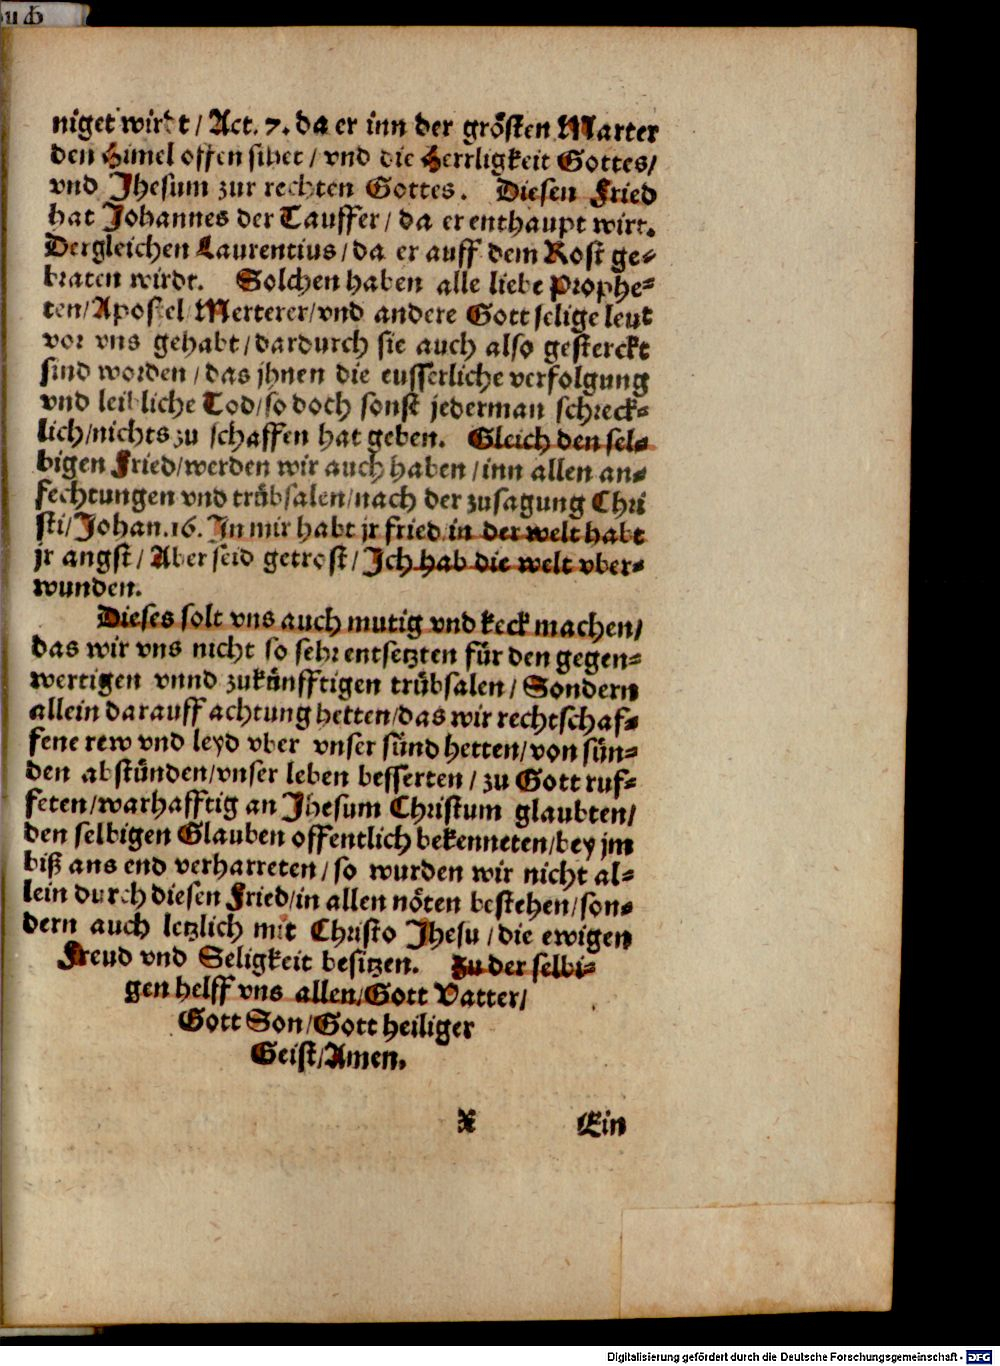 niget wirdt / Act. 7. da er inn der grösten Marter
den Himel offen sihet / vnd die Herrligkeit Gottes /
vnd Jhesum zur rechten Gottes. Diesen Fried
hat Johannes der Tauffer / da er enthaupt wirt.
Dergleichen Laurentius / da er auff dem Rost ge-
braten wirdt. Solchen haben alle liebe Prophe-
ten / Apostel / Merterer / vnd andere Gottselige leut
vor vns gehabt / dardurch sie auch also gesterckt
sind worden / das jhnen die eusserliche verfolgung
vnd leibliche Tod / so doch sonst jederman schreck-
lich / nichts zu schaffen hat geben. Gleich den sel-
bigen Fried / werden wir auch haben / inn allen an-
fechtungen vnd trübsalen / nach der zusagung Chri
sti / Johan. 16. In mir habt jr fried / in der welt habt
jr angst / Aber seid getrost / Ich hab die welt vber-
wunden.
Dieses solt vns auch mutig vnd keck machen /
das wir vns nicht so sehr entsetzten für den gegen-
wertigen vnnd zukünfftigen trübsalen / Sondern
allein darauff achtung hetten / das wir rechtschaf-
fene rew vnd leyd vber vnser sünd hetten / von sün-
den abstünden / vnser leben besserten / zu Gott ruf-
feten / warhafftig an Jhesum Christum glaubten /
den selbigen Glauben offentlich bekenneten / bey jm
biß ans end verharreten / so wurden wir nicht al-
lein durch diesen Fried / in allen nöten bestehen / son-
dern auch letzlich mit Christo Jhesu / die ewigen
Freud vnd Seligkeit besitzen. Zu der selbi-
gen helff vns allen / Gott Vatter /
Gott Son / Gott heiliger
Geist / Amen.
X Ein
Digitalisierung gefördert durch die Deutsche Forschungsgemeinschaft - DFG